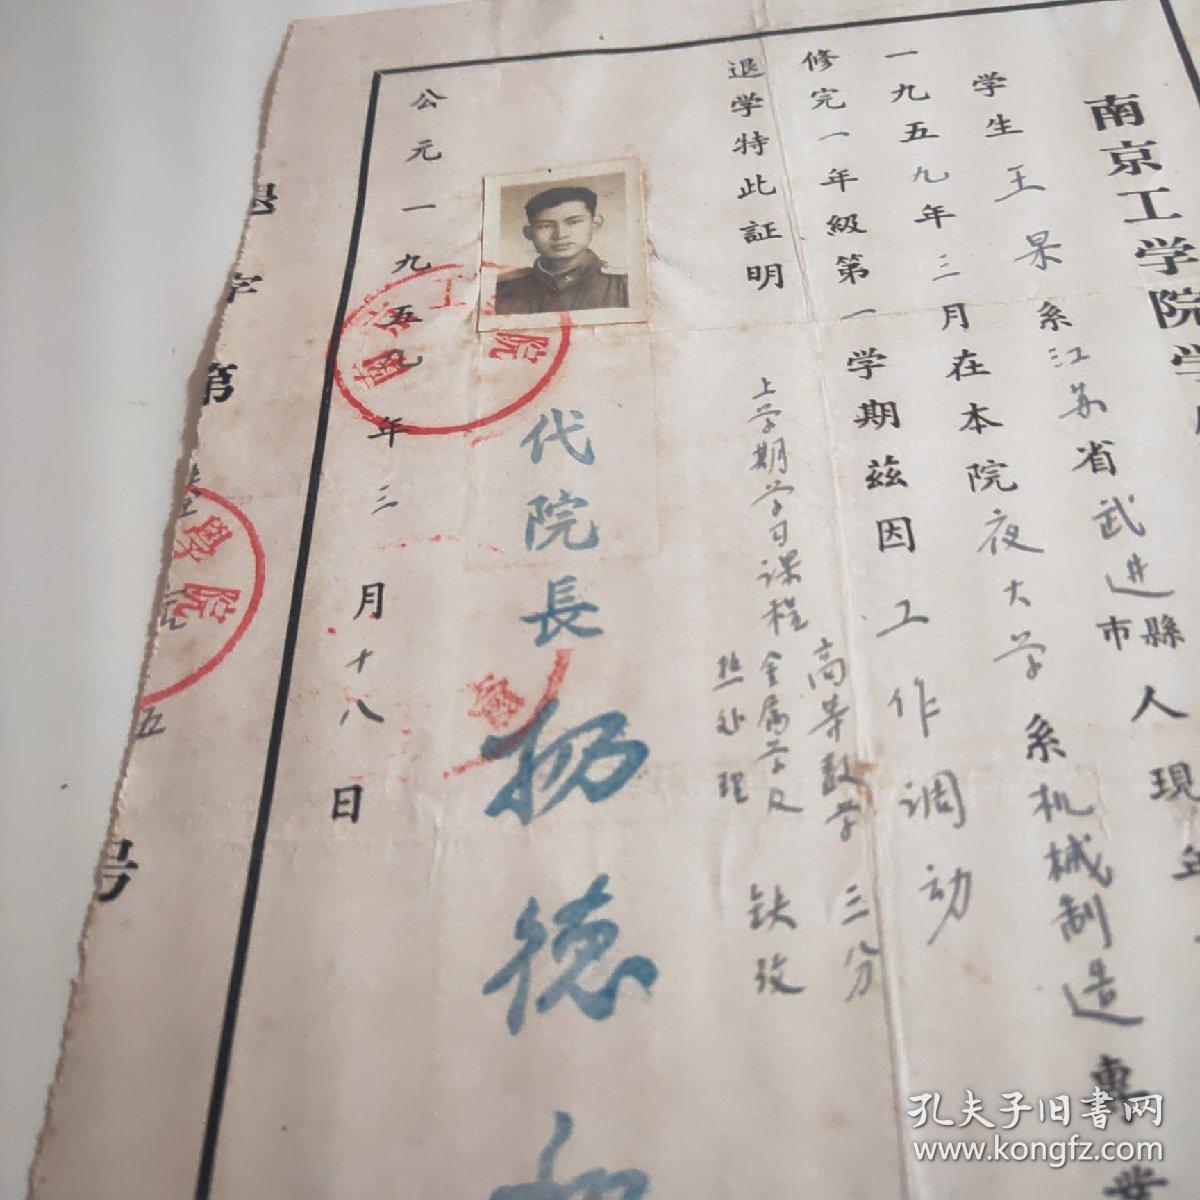 南京工学院学
学生王杲系江苏省武进县市人現年
一九五九年三月在本院夜大学系机械制造專業
修完一年級第一学期茲因工作调动
退学特此証明
上学期学习课程 高等数学 三分
金属学及热处理 缺攷
代院長 杨德和
公元一九五九年三月十八日
退字第 五号
南京工學院
學院
孔夫子旧书网
www.kongfz.com